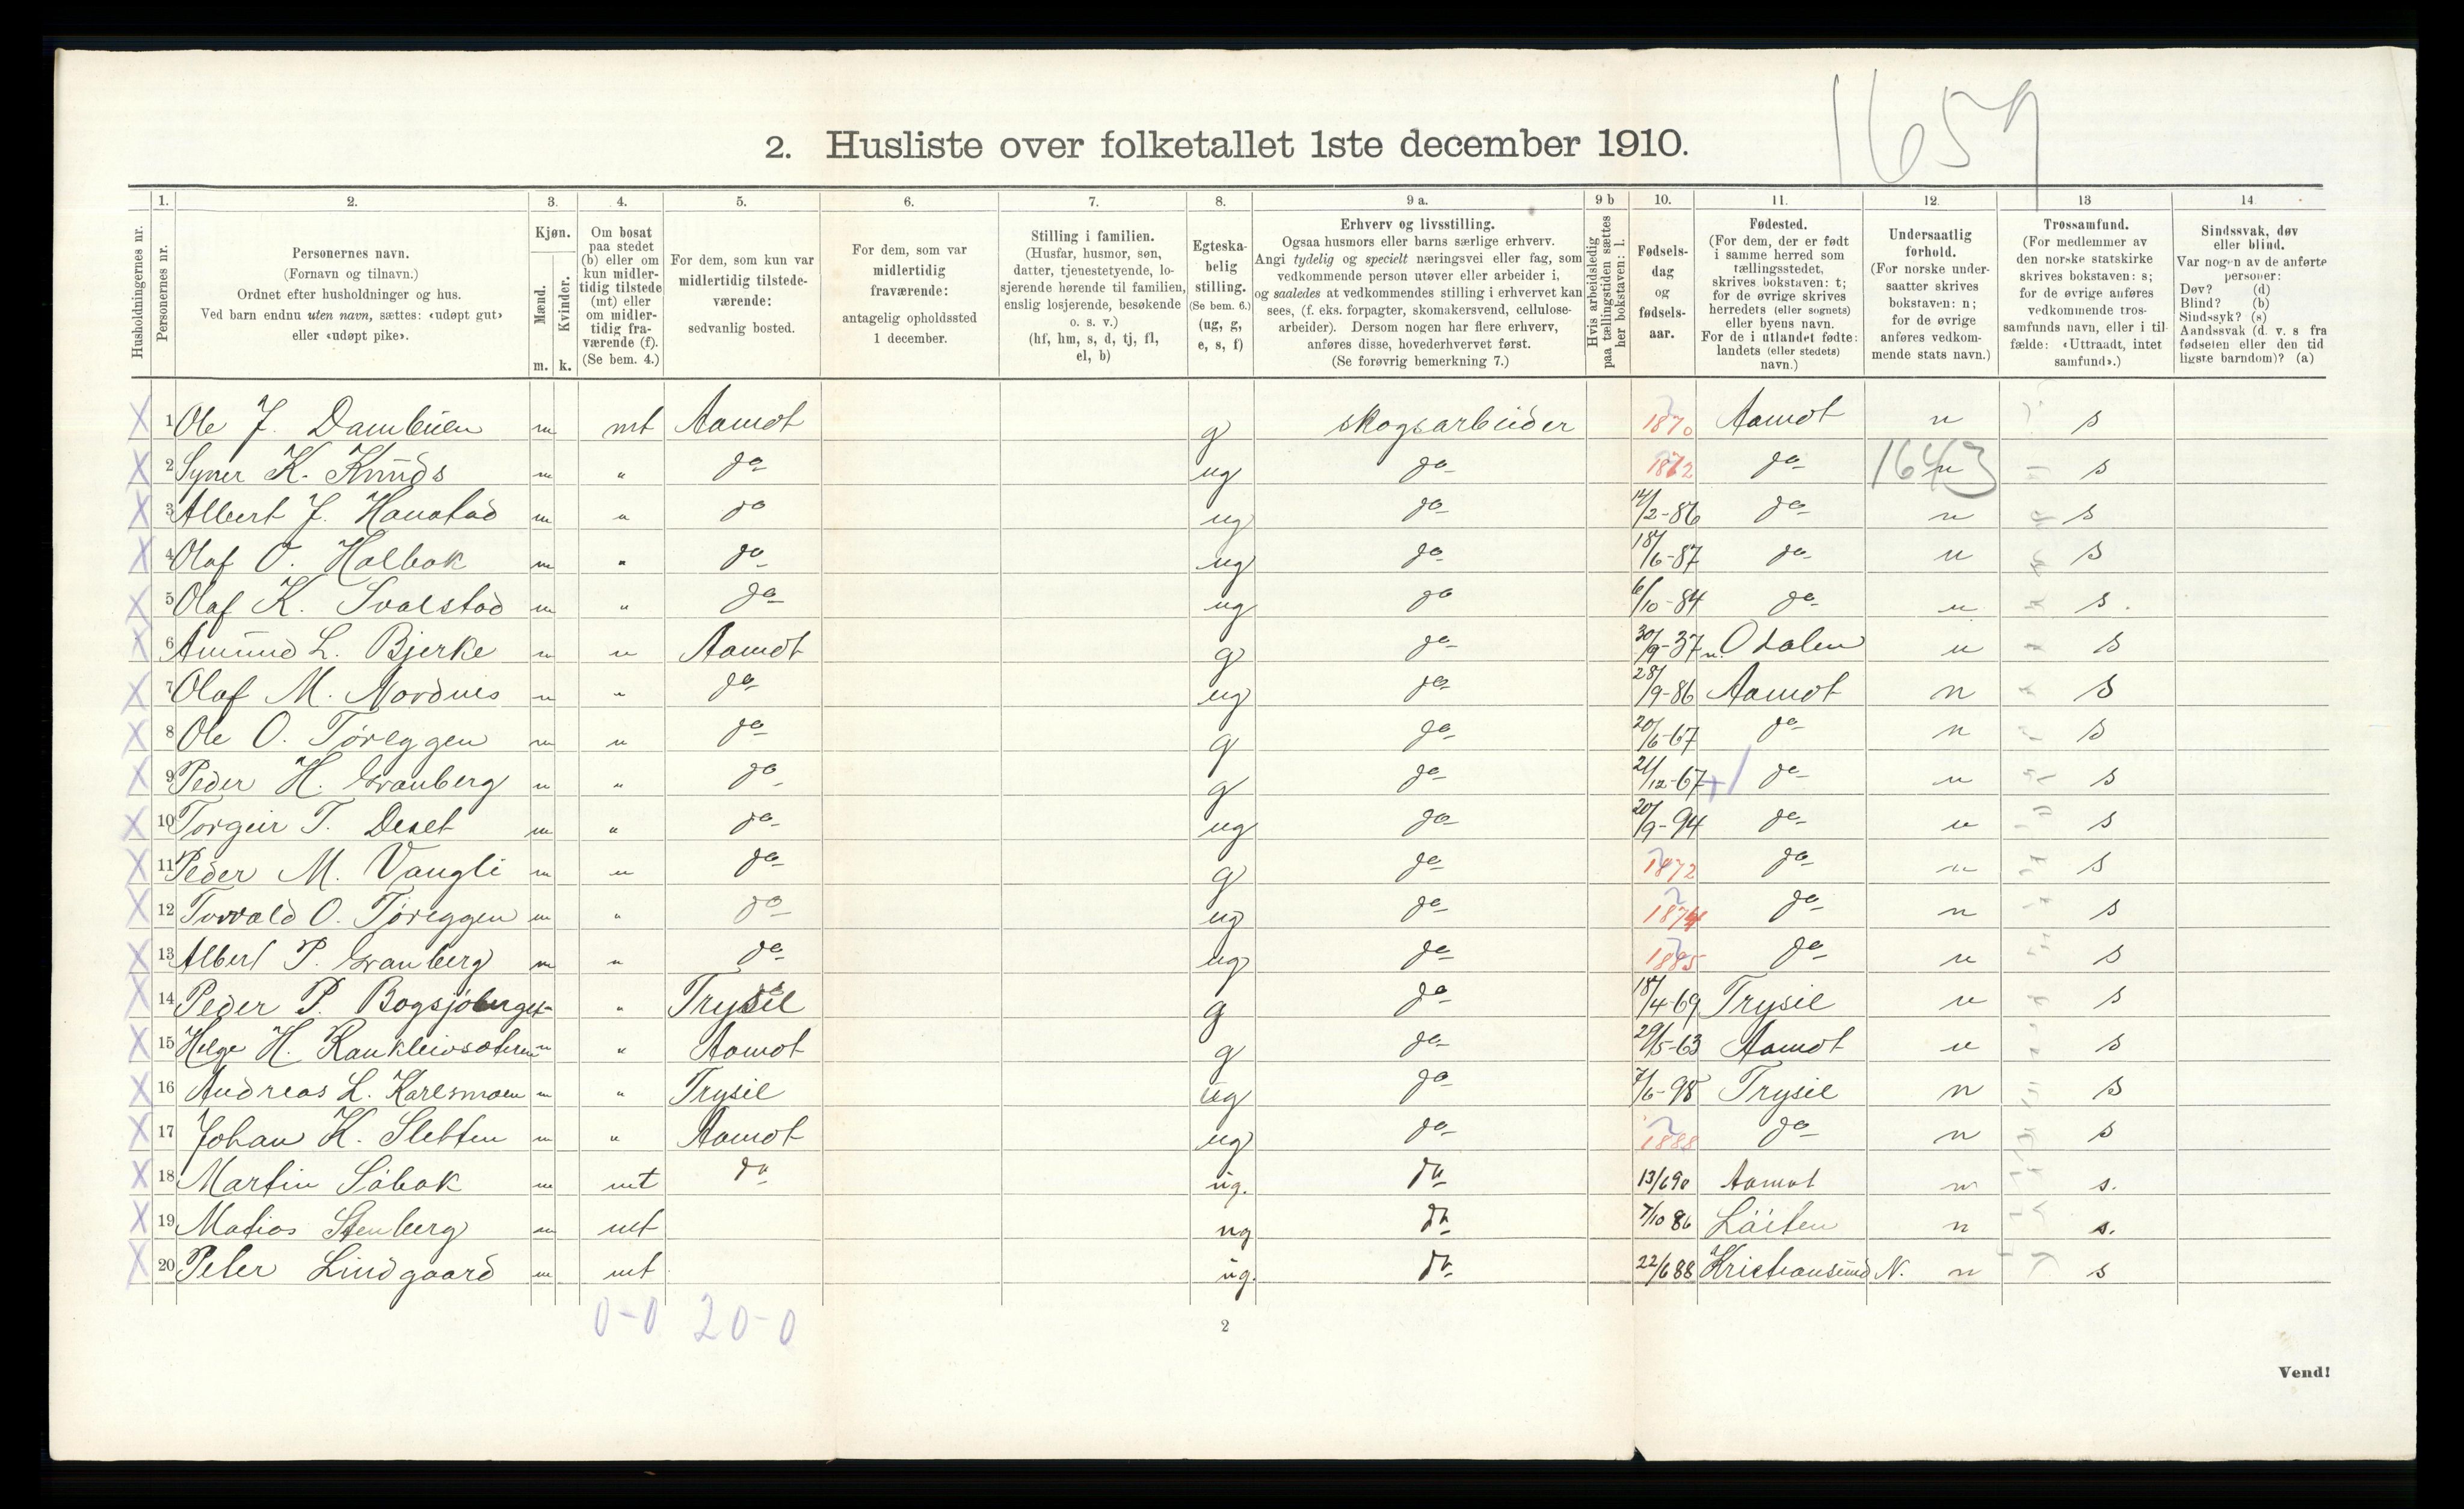 1659
2. Husliste over folketallet 1ste december 1910.
1. 2. 3. 4. 5. 6. 7. 8. 9 a. 9 b 10. 11. 12. 13 14
Husholdningernes nr.
Personernes nr.
Personernes navn.
(Fornavn og tilnavn.)
Ordnet efter husholdninger og hus.
Ved barn endnu uten navn, sættes: «udøpt gut»
eller «udøpt pike».
Kjøn.
Mænd.
Kvinder.
m. k.
Om bosat
paa stedet
(b) eller om
kun midler-
tidig tilstede
(mt) eller
om midler-
tidig fra-
værende (f).
(Se bem. 4.)
For dem, som kun var
midlertidig tilstede-
værende:
sedvanlig bosted.
For dem, som var
midlertidig
fraværende:
antagelig opholdssted
1 december.
Stilling i familien.
(Husfar, husmor, søn,
datter, tjenestetyende, lo-
sjerende hørende til familien,
enslig losjerende, besøkende
o. s. v.)
(hf, hm, s, d, tj, fl,
el, b)
Egteska-
belig
stilling.
(Se bem. 6.)
(ug, g,
e, s, f)
Erhverv og livsstilling.
Ogsaa husmors eller barns særlige erhverv.
Angi tydelig og specielt næringsvei eller fag, som
vedkommende person utøver eller arbeider i,
og saaledes at vedkommendes stilling i erhvervet kan
sees, (f. eks. forpagter, skomakersvend, cellulose-
arbeider). Dersom nogen har flere erhverv,
anføres disse, hovederhvervet først.
(Se forøvrig bemerkning 7.)
Hvis arbeidsledig
paa tællingstiden sættes
her bokstaven: l.
Fødsels-
dag
og
fødsels-
aar.
Fødested.
(For dem, der er født
i samme herred som
tællingsstedet,
skrives bokstaven: t;
for de øvrige skrives
herredets (eller sognets)
eller byens navn.
For de i utlandet fødte:
landets (eller stedets)
navn.)
Undersaatlig
forhold.
(For norske under-
saatter skrives
bokstaven: n;
for de øvrige
anføres vedkom-
mende stats navn.)
Trossamfund.
(For medlemmer av
den norske statskirke
skrives bokstaven: s;
for de øvrige anføres
vedkommende tros-
samfunds navn, eller i til-
fælde: «Uttraadt, intet
samfund».)
Sindssvak, døv
eller blind.
Var nogen av de anførte
personer:
Døv? (d)
Blind? (b)
Sindssyk? (s)
Aandssvak (d. v. s. fra
fødselen eller den tid-
ligste barndom)? (a)
1 Ole J. Dambuen m mt Aamot g skogsarbeider 1870 Aamot n s
2 Syver K. Knuds m " do ug do 1872 do n s 1643
3 Albert J. Hanstad m " do ug do 14/2-86 do n s
4 Olaf O. Holbak m " do ug do 18/6-87 do n s
5 Olaf K. Svalstad m " do ug do 6/10-84 do n s.
6 Amund L. Bjerke m " Aamot g do 30/9-37 n. Odalen n s
7 Olaf M. Nordnes m " do ug do 28/9-86 Aamot n s
8 Ole O. Tøreggen m " do g do 20/6-67 do n s
9 Peder H. Granberg m " do g do 21/12-67 do n s
10 Torgeir T. Deset m " do ug do 20/9-94 do n s
11 Peder M. Vangli m " do g do 1872 do n s
12 Torvald O. Tøreggen m " do ug do 1874 do n s
13 Albert P. Granberg m " do ug do 1885 do n s
14 Peder P. Bogsjøberget m " Trysil g do 18/4-69 Trysil n s
15 Helge H. m " Aamot g do 29/5-63 Aamot n s
16 Andreas L. Karlsmoen m " Trysil ug do 7/6-98 Trysil n s
17 Johan K. Sletten m " Aamot ug do 1888 do n s
18 Martin Søbak m mt do ug. do 13/6 90 Aamot n s.
19 Matias Stenberg m mt ug do 7/10 86 Løiten n s.
20 Peter Lindgaard m mt ug. do 22/6 88 Kristiansund N. n s
0-0 20-0
2
Vend!